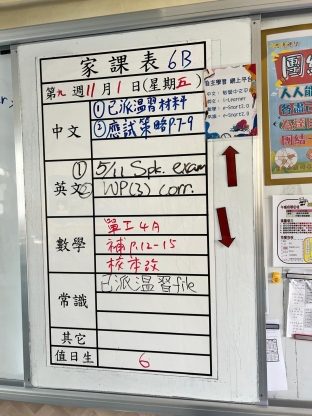 家課表 6B
第九週11月1日(星期五)
中文
①已派溫習材料
②應試策略P.7-9
英文
① 5/11 Spk. exam
② WP(3) corr.
數學
單工4A
補P.12-15
核本改
常識
已派溫習file
其它
值日生
6
自主學習 網上平台
團結
人人能